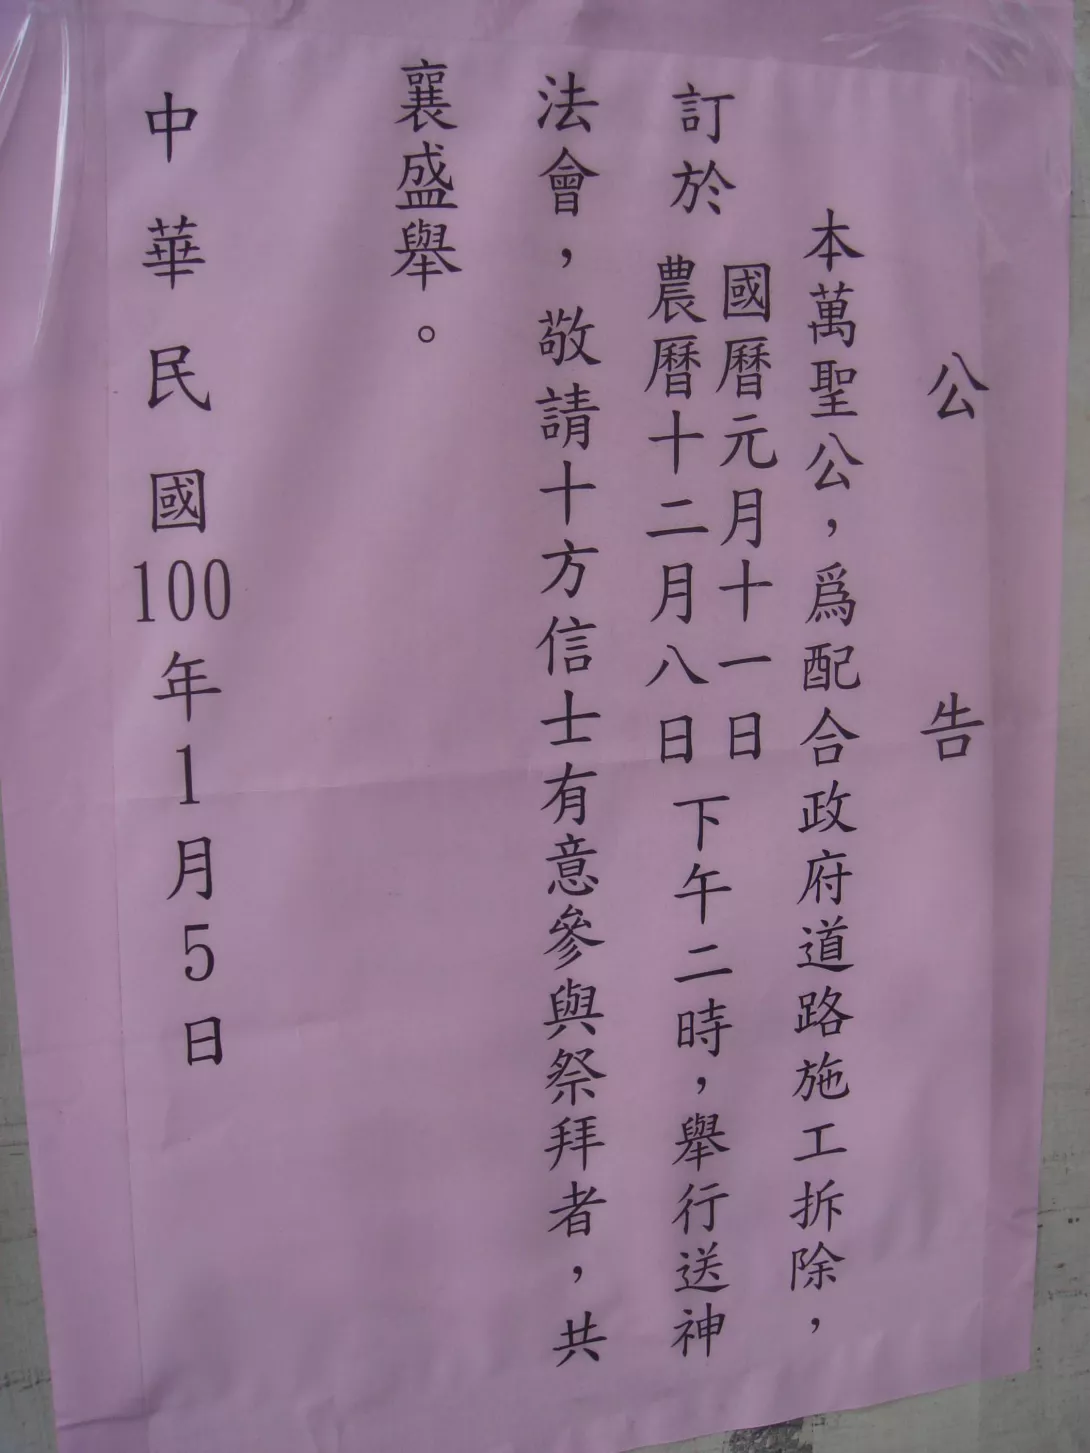 公告
本萬聖公，爲配合政府道路施工拆除，
訂於
國曆元月十一日
農曆十二月八日
下午二時，舉行送神
法會，敬請十方信士有意參與祭拜者，共
襄盛舉。
中華民國100年1月5日